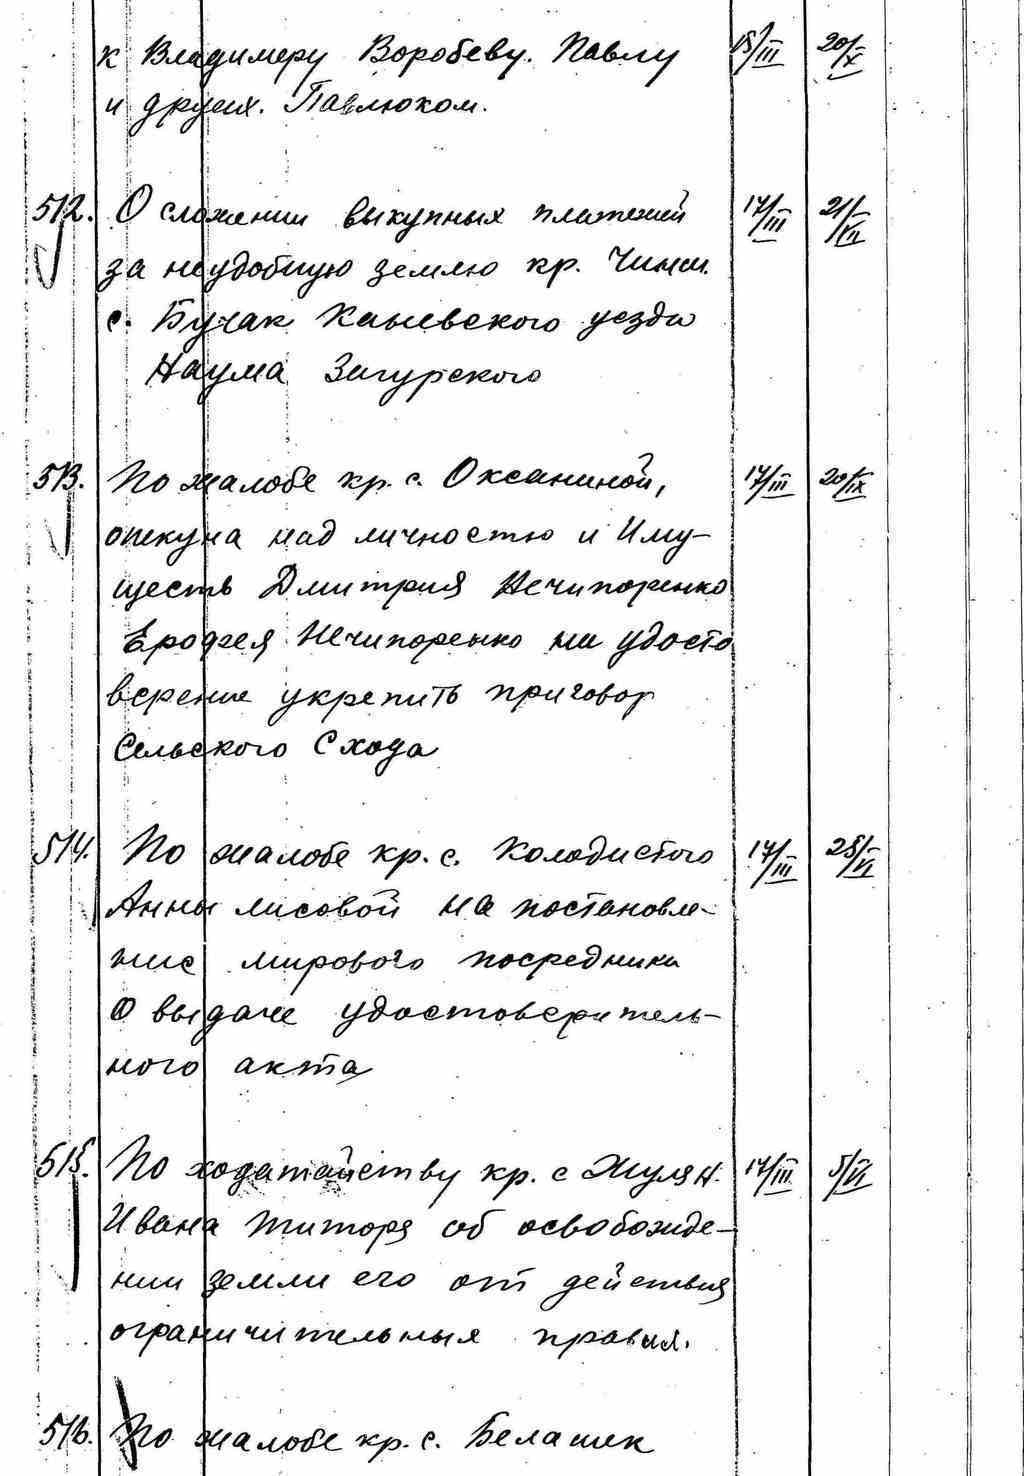 к Владимеру Воробеву. Павлу 15/III 20/X
и других. Павлюком.
512. О сложении выкупных платежей 17/III 21/VII
за неудобную землю кр. Чинш.
с. Бучак Каневского уезда
Наума Загурского
513. По жалобе кр. с. Оксаниной, 17/III 20/IX
опекуна над личностю и Иму-
ществ Дмитрия Нечипоренко
Ерофея Нечипоренко на удосто
верение укрепить приговор
Сельского Схода
514. По жалобе кр. с. Колодистого 17/III 28/VI
Анны лисовой на постановле-
ние мирового посредника
О выдаче удостоверитель-
ного акта
515. По ходатайству кр. с Жулян. 17/III 5/VI
Ивана Титоря об освобожде-
нии земли его от действия
ограничительных правил.
516. По жалобе кр. с. Белашек